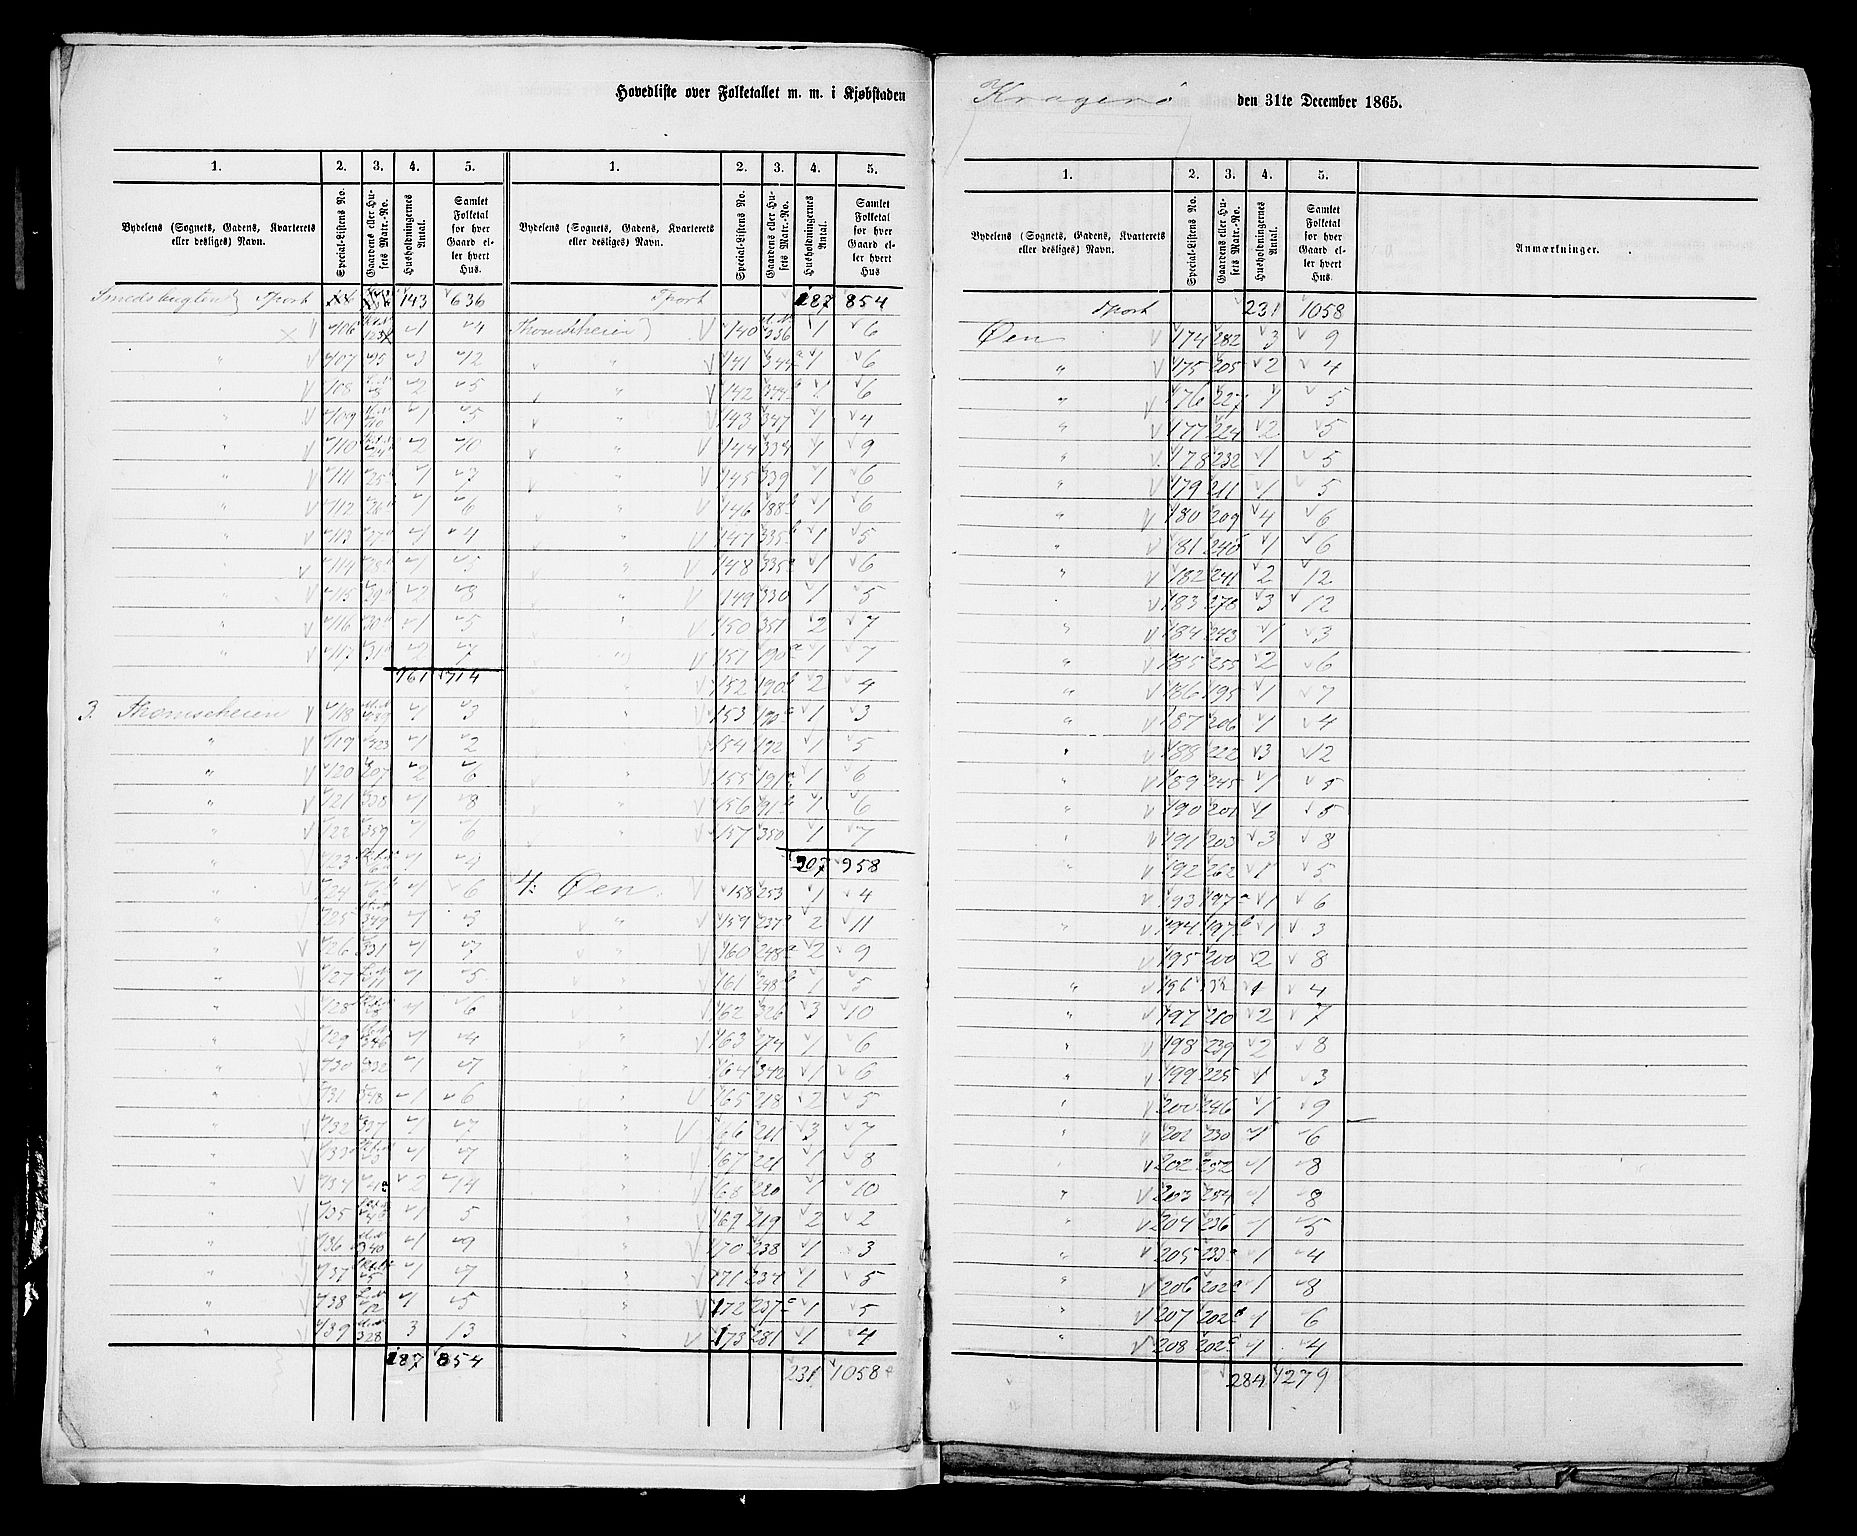 Hovedliste over Folketallet m. m. i Kjøbstaden Kragerø den 31te December 1865.
1. 2. 3. 4. 5. 1. 2. 3. 4. 5.
Bydelens (Sognets, Gadens, Kvarterets eller desliges) Navn. Special-Listens No. Gaardens eller Husets Matr.-No. Husholdningernes Antal. Samlet Folketal for hver Gaard eller hvert Hus.
Smedsbugten Tport 143 636
106 1 4
" 107 35 3 12
" 108 2 5
" 109 1 5
" 110 2 10
" 111 25 1 7
" 112 26 1 6
" 113 27 1 4
" 114 1 5
" 115 2 8
" 116 30 1 5
" 117 31 2 7
161 714
3. Thomseheien 118 1 3
" 119 323 1 2
" 120 207 2 6
" 121 338 1 8
" 122 359 1 6
" 123 1 4
" 124 1 6
" 125 349 1 3
" 126 331 1 7
" 127 1 5
" 128 1 6
" 129 346 1 4
" 130 332 1 7
" 131 348 1 6
" 132 337 1 7
" 133 1 7
" 134 2 14
" 135 1 5
" 136 340 1 9
" 137 1 7
" 138 1 5
" 139 328 3 13
187 854
Bydelens (Sognets, Gadens, Kvarterets eller desliges) Navn. Special-Listens No. Gaardens eller Husets Matr.-No. Husholdningernes Antal. Samlet Folketal for hver Gaard eller hvert Hus
Tport 187 854
Thomseheien 140 336 1 6
" 141 344 a 1 6
" 142 344 b 1 6
" 143 347 1 4
" 144 334 1 9
" 145 339 1 6
" 146 188 b 1 6
" 147 335 b 1 5
" 148 335 a 1 6
" 149 330 1 5
" 150 351 2 7
" 151 190 a 1 7
" 152 190 b 2 4
" 153 190 c 1 3
" 154 192 1 5
" 155 191 a 1 6
" 156 191 b 1 6
" 157 350 1 7
207 958
4. Øen 158 253 1 4
" 159 237 b 2 11
" 160 248 a 2 9
" 161 248 b 1 5
" 162 326 3 10
" 163 274 1 6
" 164 342 1 6
" 165 218 2 5
" 166 211 3 7
" 167 221 1 8
" 168 220 1 10
" 169 219 2 2
" 170 238 1 3
" 171 234 1 5
" 172 237 a 1 5
" 173 281 1 4
231 1058
1. 2. 3. 4. 5.
Bydelens (Sognets, Gadens, Kvarterets eller desliges) Navn. Special-Listens No. Gaardens eller Husets Matr.-No. Husholdningernes Antal. Samlet Folketal for hver Gaard eller hvert Hus. Anmærkninger.
Tport 231 1058
Øen 174 282 3 9
" 175 205 2 4
" 176 227 1 5
" 177 224 2 5
" 178 232 1 5
" 179 211 1 5
" 180 209 4 6
" 181 240 1 6
" 182 241 2 12
" 183 278 3 12
" 184 243 1 3
" 185 255 2 6
" 186 195 1 7
" 187 206 1 4
" 188 222 3 12
" 189 245 1 5
" 190 201 1 5
" 191 203 3 8
" 192 262 1 5
" 193 197 a 1 6
" 194 197 b 1 3
195 200 2 8
" 196 1 4
" 197 210 2 7
" 198 239 2 8
" 199 225 1 3
" 200 246 1 9
" 201 230 1 6
" 202 252 1 8
" 203 254 1 8
" 204 236 1 5
" 205 233 1 4
" 206 202 a 1 8
" 207 202 b 1 6
" 208 202 c 1 4
284 1279